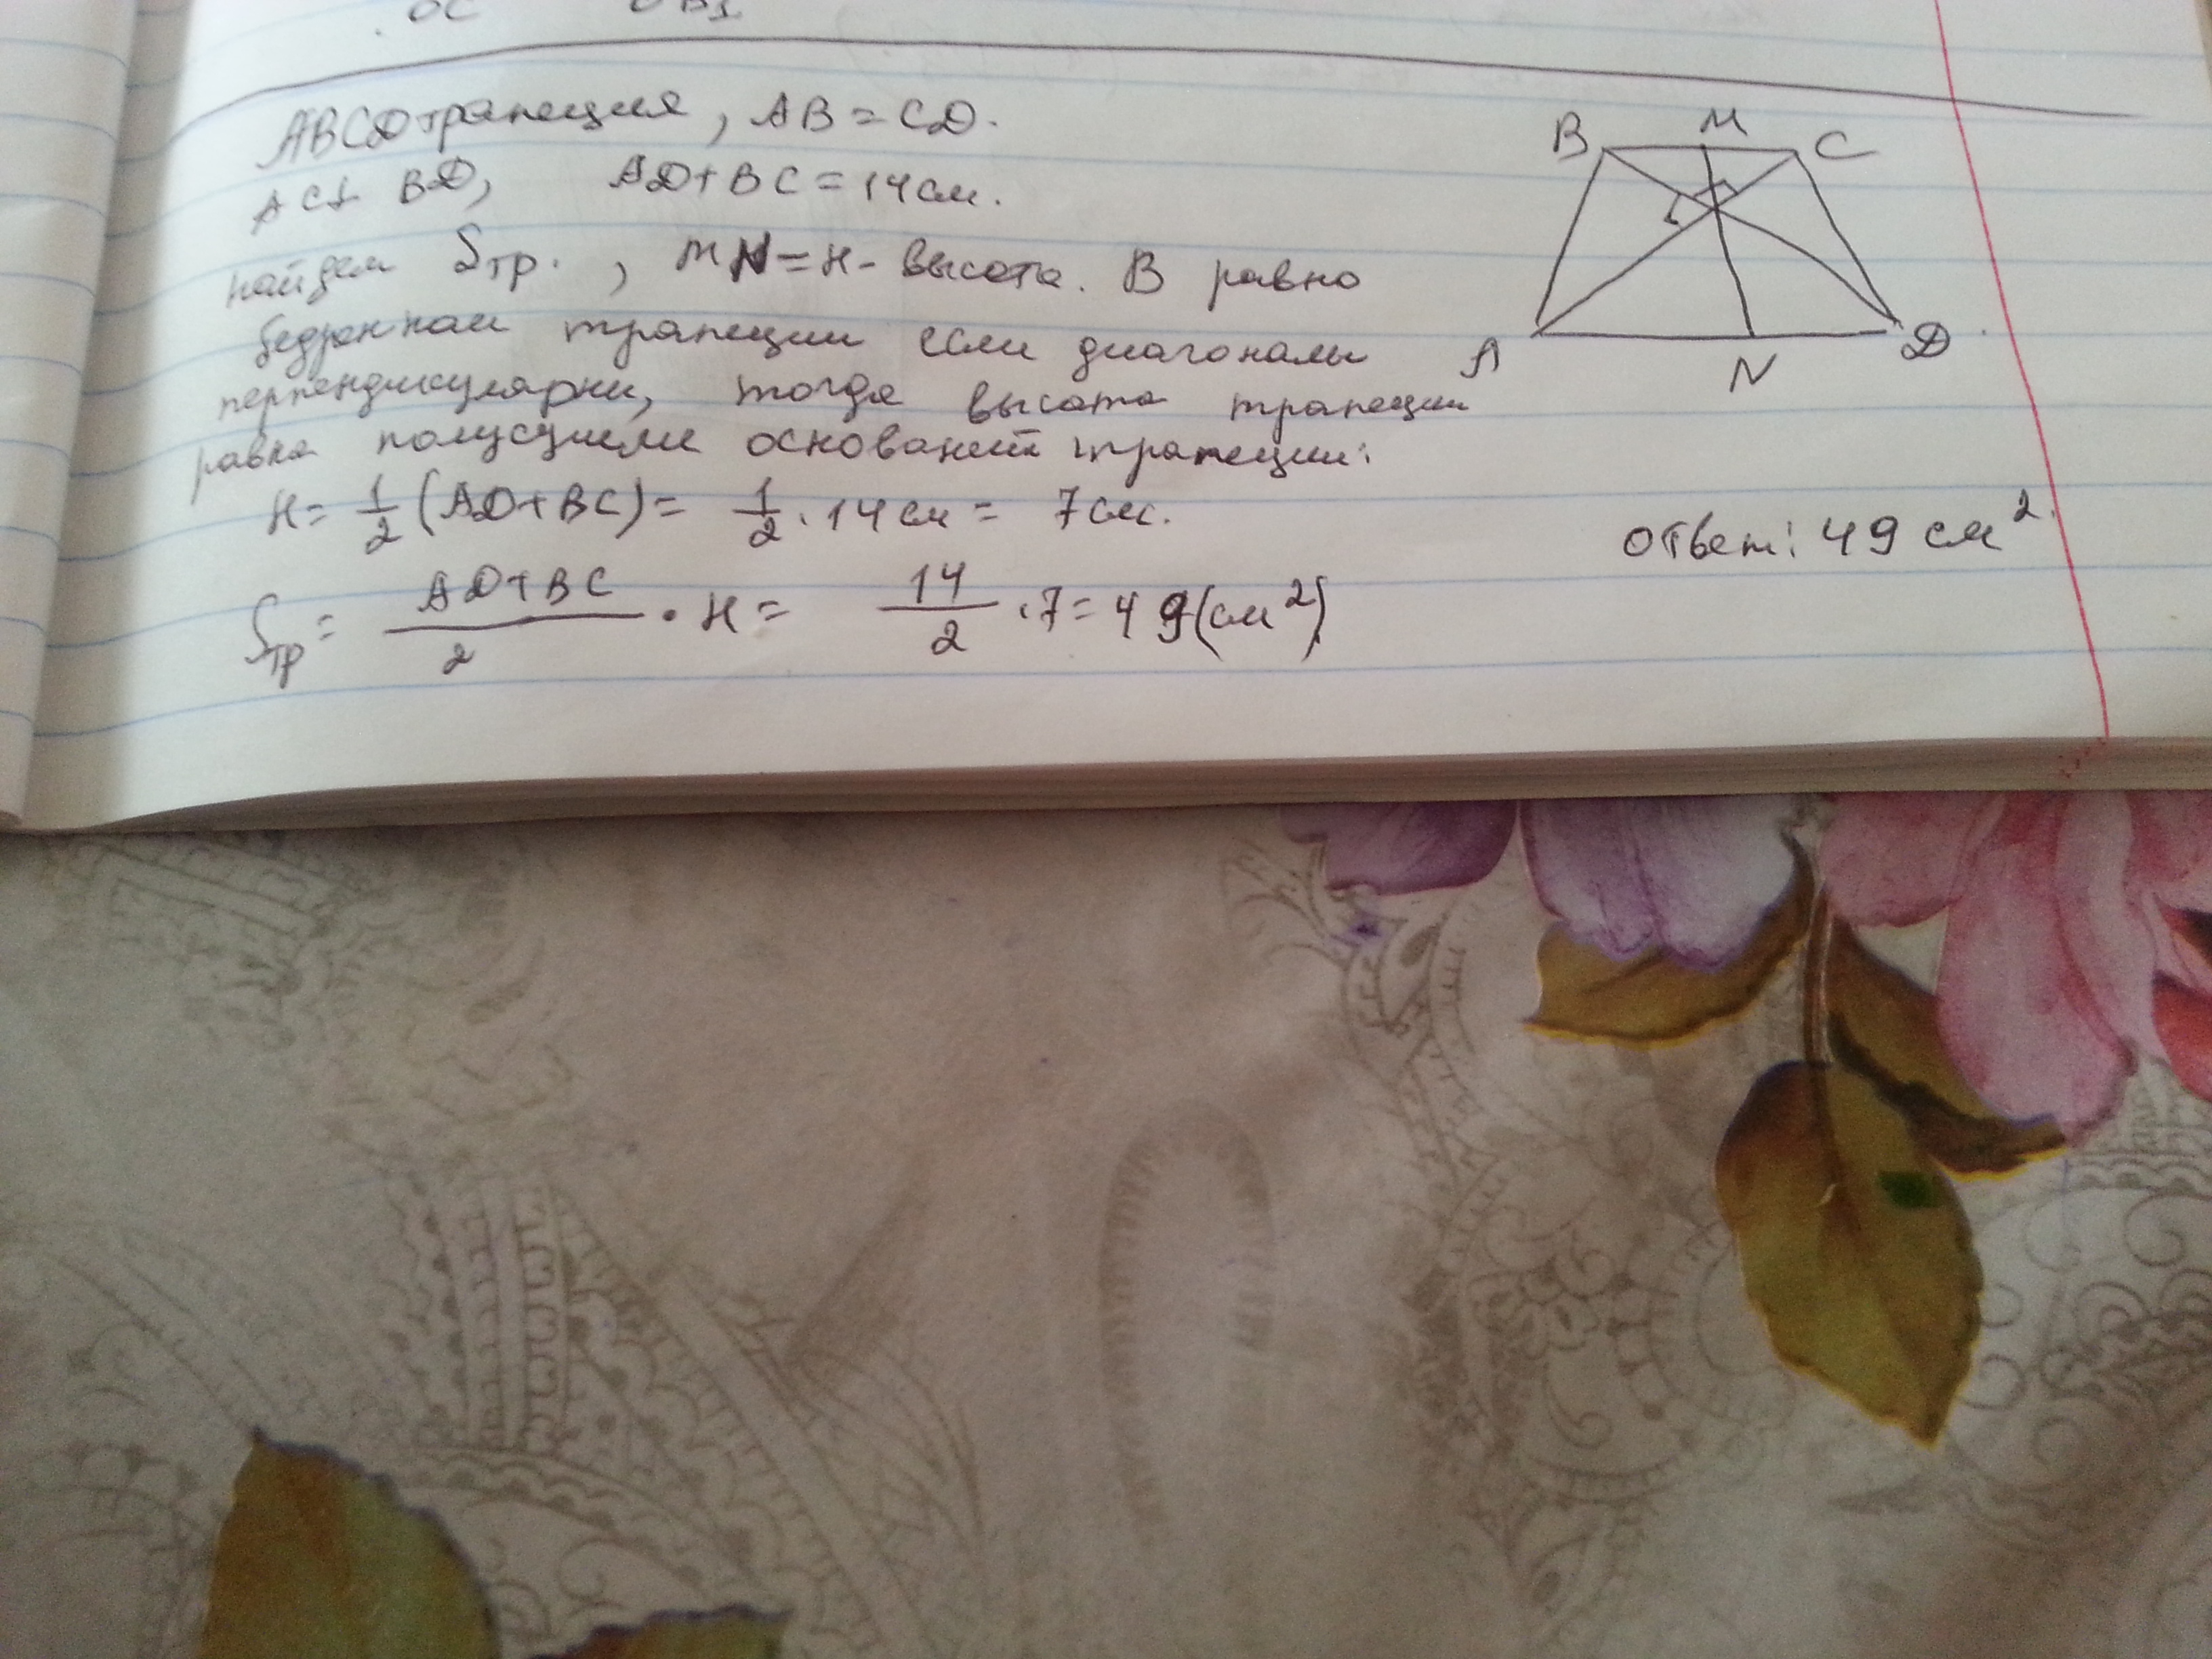 ABCD трапеция, AB = CD.
AC ⊥ BD, AD + BC = 14 см.
найдем Sтр. , MN = H - высота. В равно
бедренной трапеции если диагонали
перпендикулярны, тогда высота трапеции
равна полусумме оснований трапеции:
H = 1/2 (AD + BC) = 1/2 · 14 см = 7 см.
Sтр = (AD + BC)/2 · H = 14/2 · 7 = 49 (см²)
Ответ: 49 см².
B M C
A N D